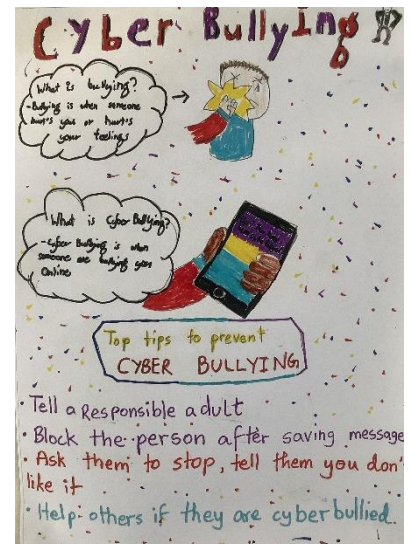 Cyber Bullying
What is bullying?
-Bullying is when someone
hurt's you or hurt's
your feelings
What is Cyber Bullying?
-Cyber Bullying is when
someone are bullying you
Online
Top tips to prevent
CYBER BULLYING
• Tell a Responsible adult
• Block the person after saving message
• Ask them to stop, tell them you don'
like it
• Help others if they are cyberbullied.